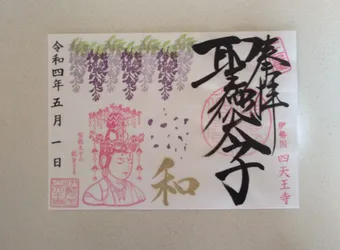 奉拝
聖徳太子
伊勢国 四天王寺
和
令和四年五月一日